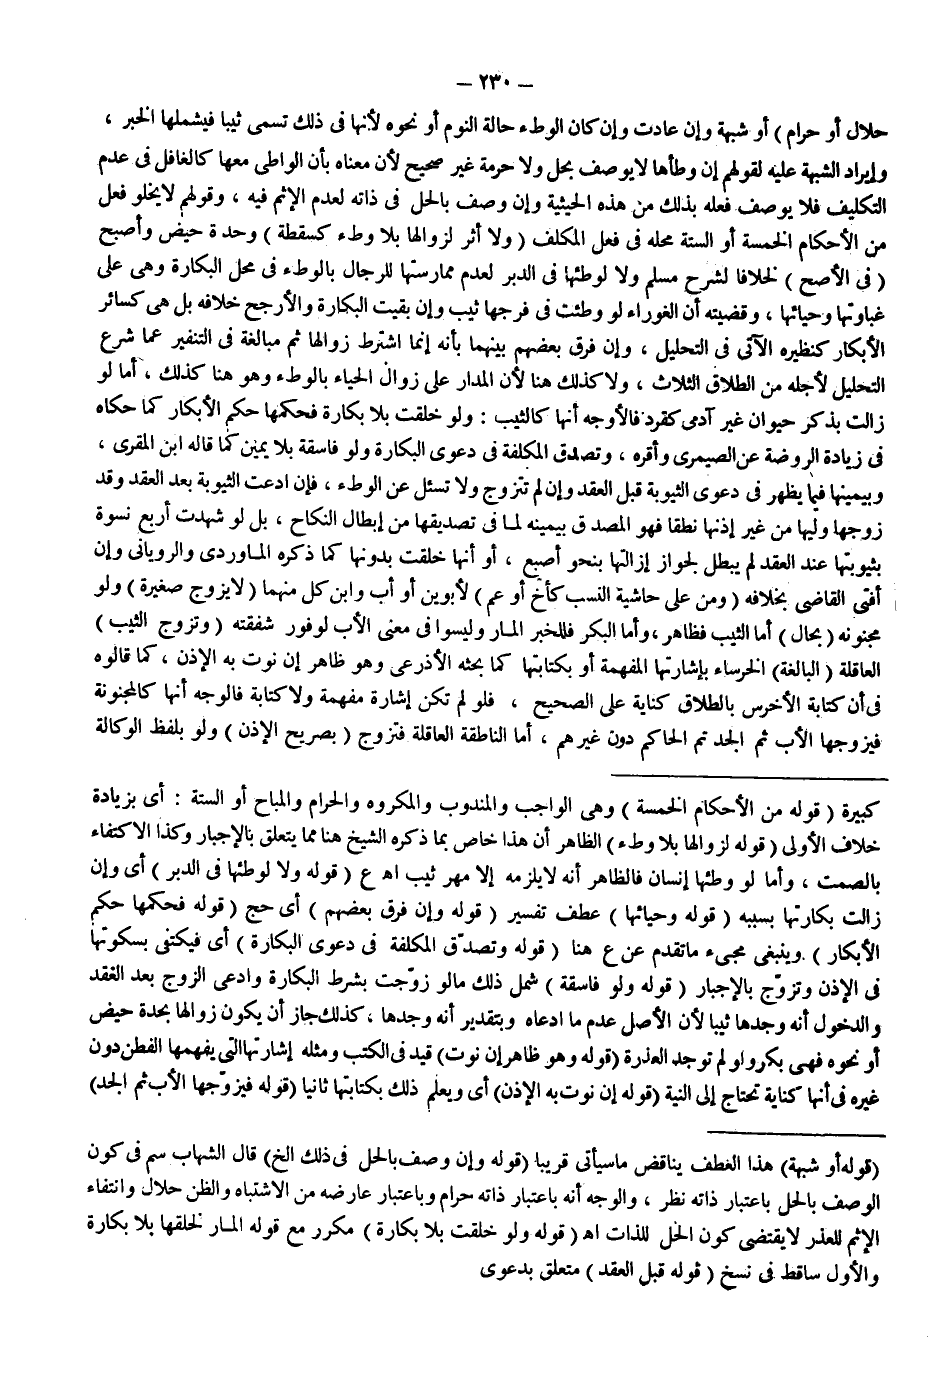 – ٢٣٠ –
حلال أو حرام ) أو شبهة وإن عادت وإن كان الوطء حالة النوم أو نحوه لأنها فى ذلك تسمى ثيبا فيشملها الخبر ،
وإيراد الشبهة عليه لقولهم إن وطأها لا يوصف بحل ولا حرمة غير صحيح لأن معناه بأن الواطى معها كالغافل فى عدم
التكليف فلا يوصف فعله بذلك من هذه الحيثية وإن وصف بالحل فى ذاته لعدم الإثم فيه ، وقولهم لايخلو فعل
من الأحكام الخمسة أو الستة محله فى فعل المكلف ( ولا أثر لزوالها بلا وطء كسقطة ) وحدة حيض وأصبع
( فى الأصح ) لخلافا لشرح مسلم ولا لوطئها فى الدبر لعدم ممارستها للرجال بالوطء فى محل البكارة وهى على
غباوتها وحيائها ، وقضيته أن الغوراء لو وطئت فى فرجها ثيب وإن بقيت البكارة والأرجح خلافه بل هى كسائر
الأبكار كنظيره الآتى فى التحليل ، وإن فرق بعضهم بينهما بأنه إنما اشترط زوالها ثم مبالغة فى التنفير عما شرع
التحليل لأجله من الطلاق الثلاث ، ولا كذلك هنا لأن المدار على زوال الحياء بالوطء وهو هنا كذلك ، أما لو
زالت بذكر حيوان غير آدمى كقرد فالأوجه أنها كالثيب : ولو خلقت بلا بكارة فحكمها حكم الأبكار كما حكاه
فى زيادة الروضة عن الصيمرى وأقره ، وتصدق المكلفة فى دعوى البكارة ولو فاسقة بلا يمين كما قاله ابن المقرى ،
وبيمينها فيما يظهر فى دعوى الثيوبة قبل العقد وإن لم تتزوج ولا تسئل عن الوطء ، فإن ادعت الثيوبة بعد العقد وقد
زوجها وليها من غير إذنها نطقا فهو المصدق بيمينه لما فى تصديقها من إبطال النكاح ، بل لو شهدت أربع نسوة
بثيوبتها عند العقد لم يبطل لجواز إزالتها بنحو أصبع ، أو أنها خلقت بدونها كما ذكره الماوردى والرويانى وإن
أفتى القاضى بخلافه ( ومن على حاشية النسب كأخ أو عم ) لأبوين أو أب وابن كل منهما ( لايزوج صغيرة ) ولو
مجنونه ( بحال ) أما الثيب فظاهر ، وأما البكر فللخبر المار وليسوا فى معنى الأب لوفور شفقته ( وتزوج الثيب )
العاقلة ( البالغة) الخرساء بإشارتها المفهمة أو بكتابتها كما بحثه الأذرعى وهو ظاهر إن نوت به الإذن ، كما قالوه
فى أن كتابة الأخرس بالطلاق كناية على الصحيح ، فلو لم تكن إشارة مفهمة ولا كتابة فالوجه أنها كالمجنونة
فيزوجها الأب ثم الجد ثم الحاكم دون غيرهم ، أما الناطقة العاقلة فتزوج ( بصريح الإذن ) ولو بلفظ الوكالة
كبيرة ( قوله من الأحكام الخمسة ) وهى الواجب والمندوب والمكروه والحرام والمباح أو الستة : أى بزيادة
خلاف الأولى ( قوله لزوالها بلا وطء ) الظاهر أن هذا خاص بما ذكره الشيخ هنا مما يتعلق بالإجبار وكذا الاكتفاء
بالصمت ، وأما لو وطئها إنسان فالظاهر أنه لايلزمه إلا مهر ثيب اه ع ( قوله ولا لوطئها فى الدبر ) أى وإن
زالت بكارتها بسببه ( قوله وحيائها ) عطف تفسير ( قوله وإن فرق بعضهم ) أى حج ( قوله فحكمها حكم
الأبكار ) وينبغى مجىء ماتقدم عن ع هنا ( قوله وتصدّق المكلفة فى دعوى البكارة ) أى فيكتفى بسكوتها
فى الإذن وتزوّج بالإجبار ( قوله ولو فاسقة ) شمل ذلك مالو زوّجت بشرط البكارة وادعى الزوج بعد العقد
والدخول أنه وجدها ثيبا لأن الأصل عدم ما ادعاه وبتقدير أنه وجدها ، كذلك جاز أن يكون زوالها بحدة حيض
أو نحوه فهى بكر ولو لم توجد العذرة (قوله وهو ظاهر إن نوت) قيد فى الكتب ومثله إشارتها التى يفهمها الفطن دون
غيره فى أنها كناية تحتاج إلى النية (قوله إن نوت به الإذن) أى ويعلم ذلك بكتابتها ثانيا (قوله فيزوّجها الأب ثم الجد)
(قوله أو شبهة) هذا العطف يناقض ماسيأتى قريبا (قوله وإن وصف بالحل فى ذلك الخ) قال الشهاب سم فى كون
الوصف بالحل باعتبار ذاته نظر ، والوجه أنه باعتبار ذاته حرام وباعتبار عارضه من الاشتباه والظن حلال وانتفاء
الإثم للعذر لايقتضى كون الحل للذات اه ( قوله ولو خلقت بلا بكارة ) مكرر مع قوله المار لخلقها بلا بكارة
والأول ساقط فى نسخ ( قوله قبل العقد ) متعلق بدعوى